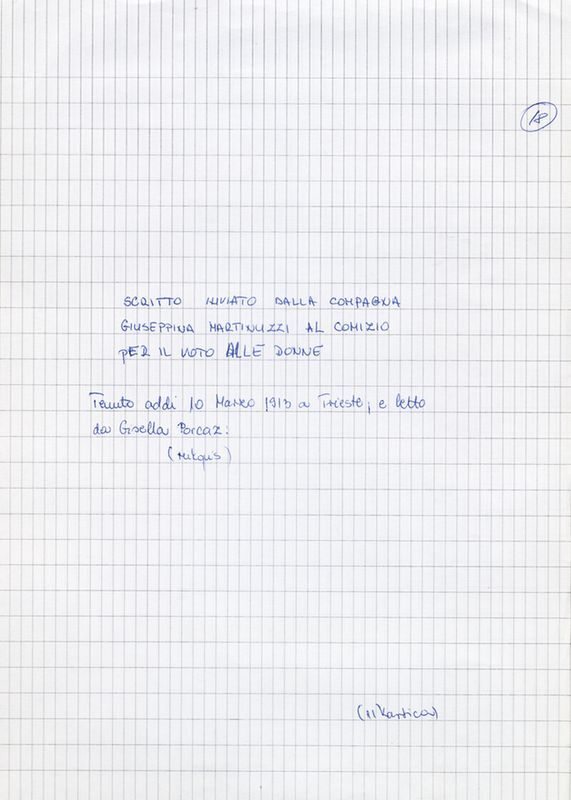 18
SCRITTO INVIATO DALLA COMPAGNA
GIUSEPPINA MARTINUZZI AL COMIZIO
PER IL VOTO ALLE DONNE
Tenuto addì 10 Marzo 1913 a Trieste, e letto
da Gisella Porcaz:
(rukopis)
(11 kartica)